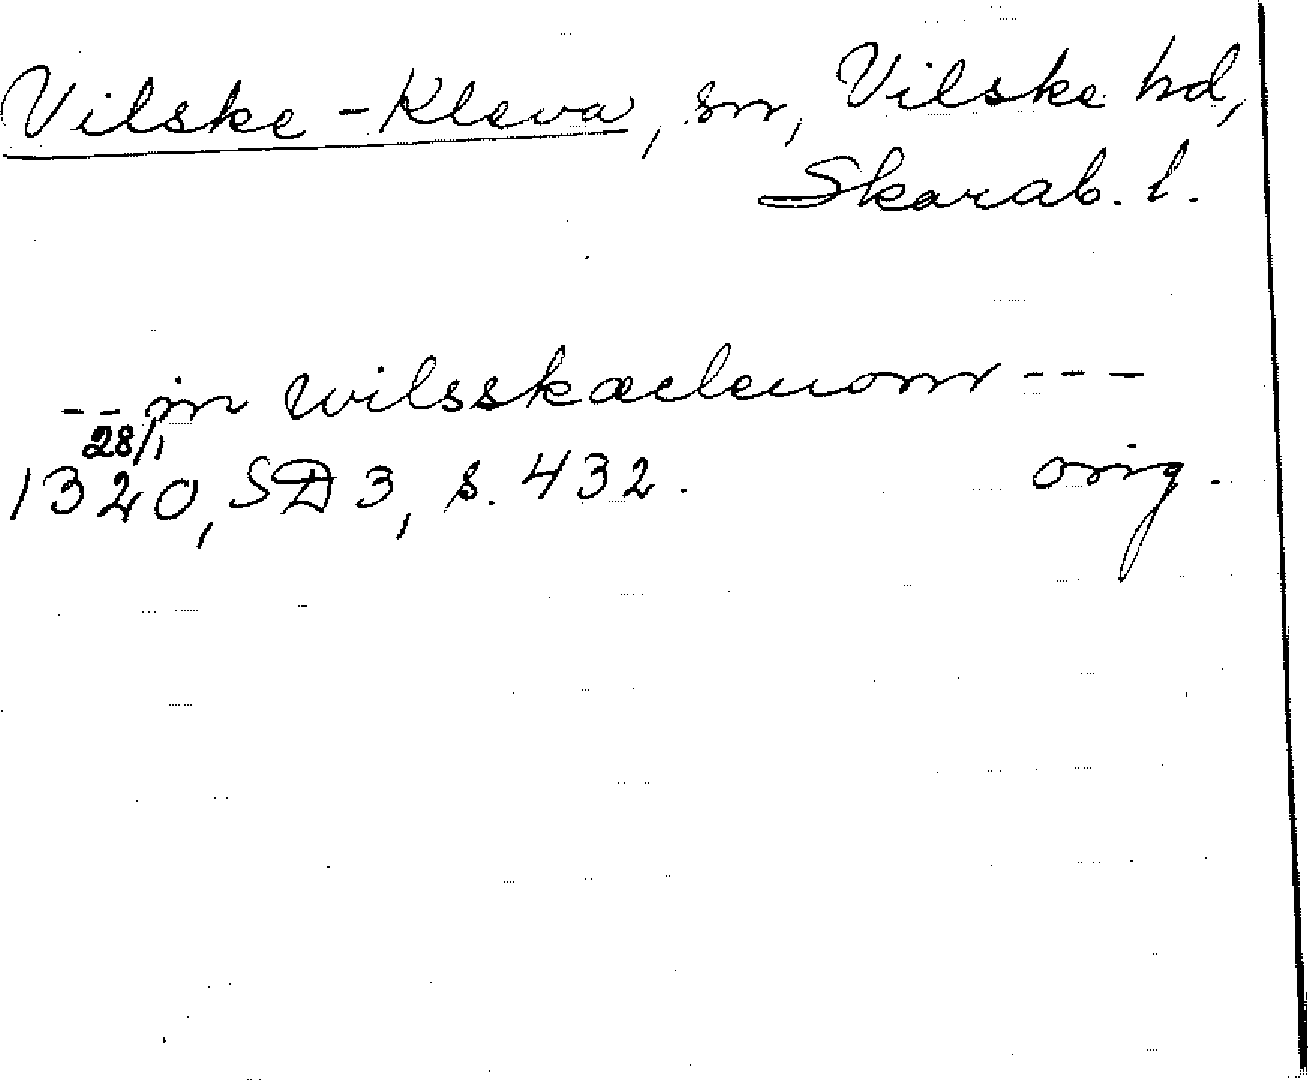 Vilske-Kleva, sn, Vilske hd,
Skarab. l.
-- jn wilsskæclenom ---
28/1
1320, SD 3, s. 432. orig.